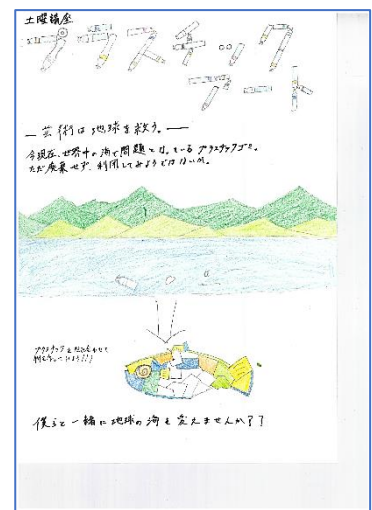 土曜講座
プラスチック
アート
― 芸術は地球を救う。―
今現在、世界中の海で問題となっているプラスチックゴミ。
ただ廃棄せず、利用してみようではないか。
プラスチックを
僕らと一緒に地球の海を変えませんか??